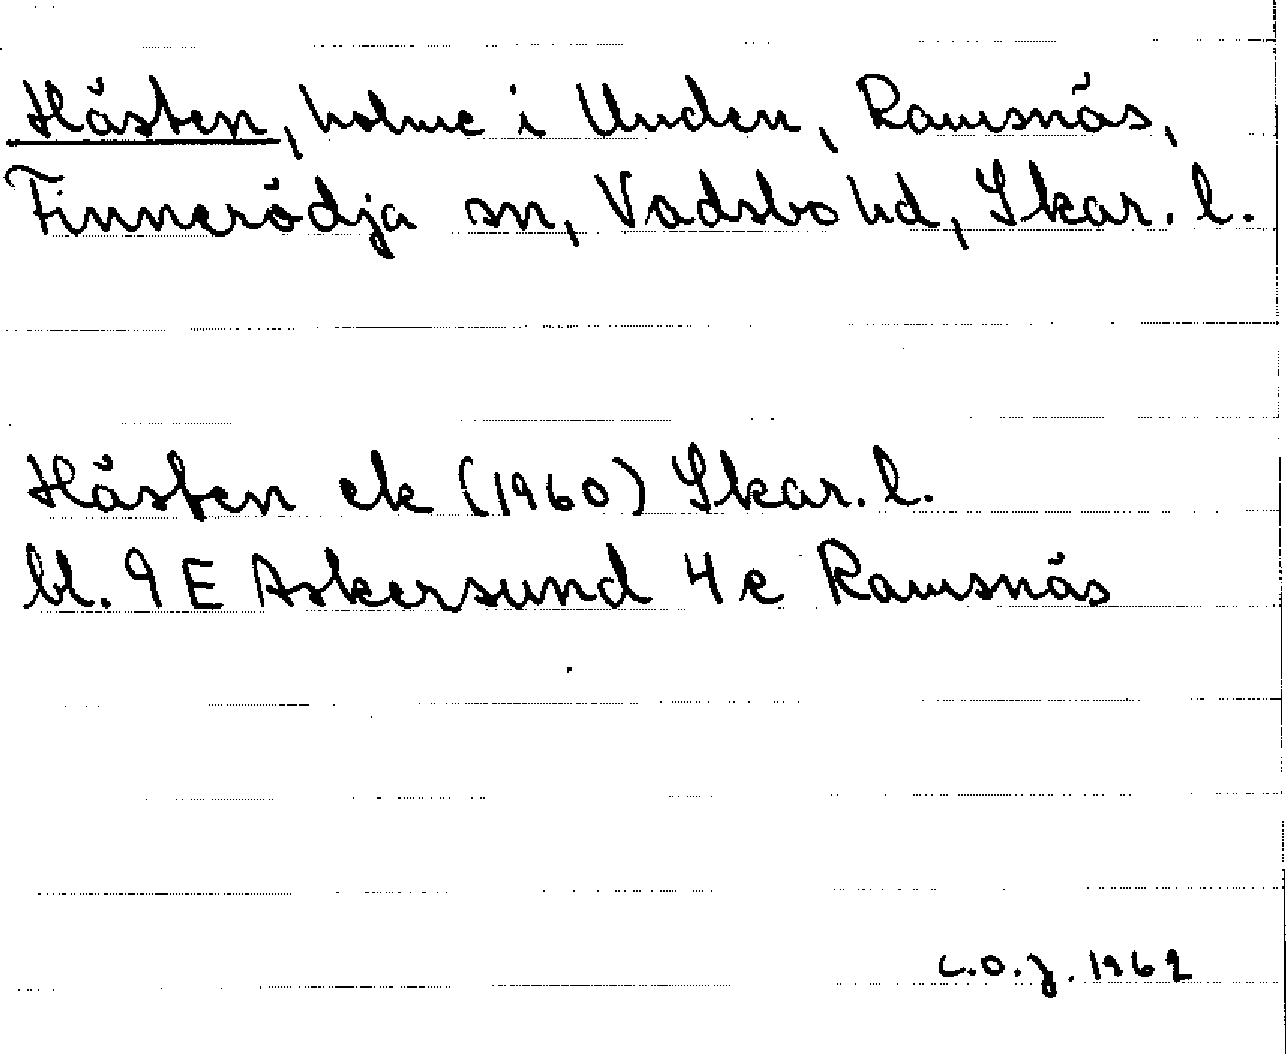 Hästen, holme i Unden, Ramsnäs,
Finnerödja sn, Vadsbo hd, Skar. l.
Hästen ek (1960) Skar. l.
bl. 9 E Askersund 4 e Ramsnäs
C.O.J. 1962